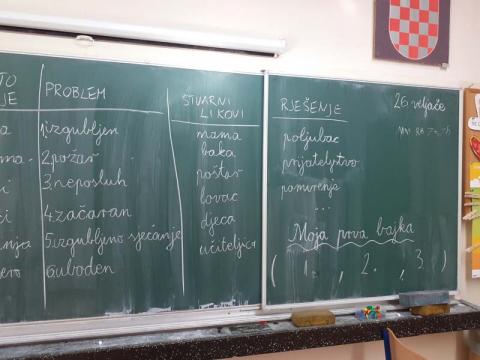 TO
JE
PROBLEM
1. izgubljen
2. požar
3. neposluh
4. začaran
5. izgubljeno sjećanje
6. uboden
STVARNI
LIKOVI
mama
baka
poštar
lovac
djeca
učiteljica
RJEŠENJE
poljubac
prijateljstvo
pomirenje
...
26. veljače
Moja prva bajka
( 1. , 2. , 3. )